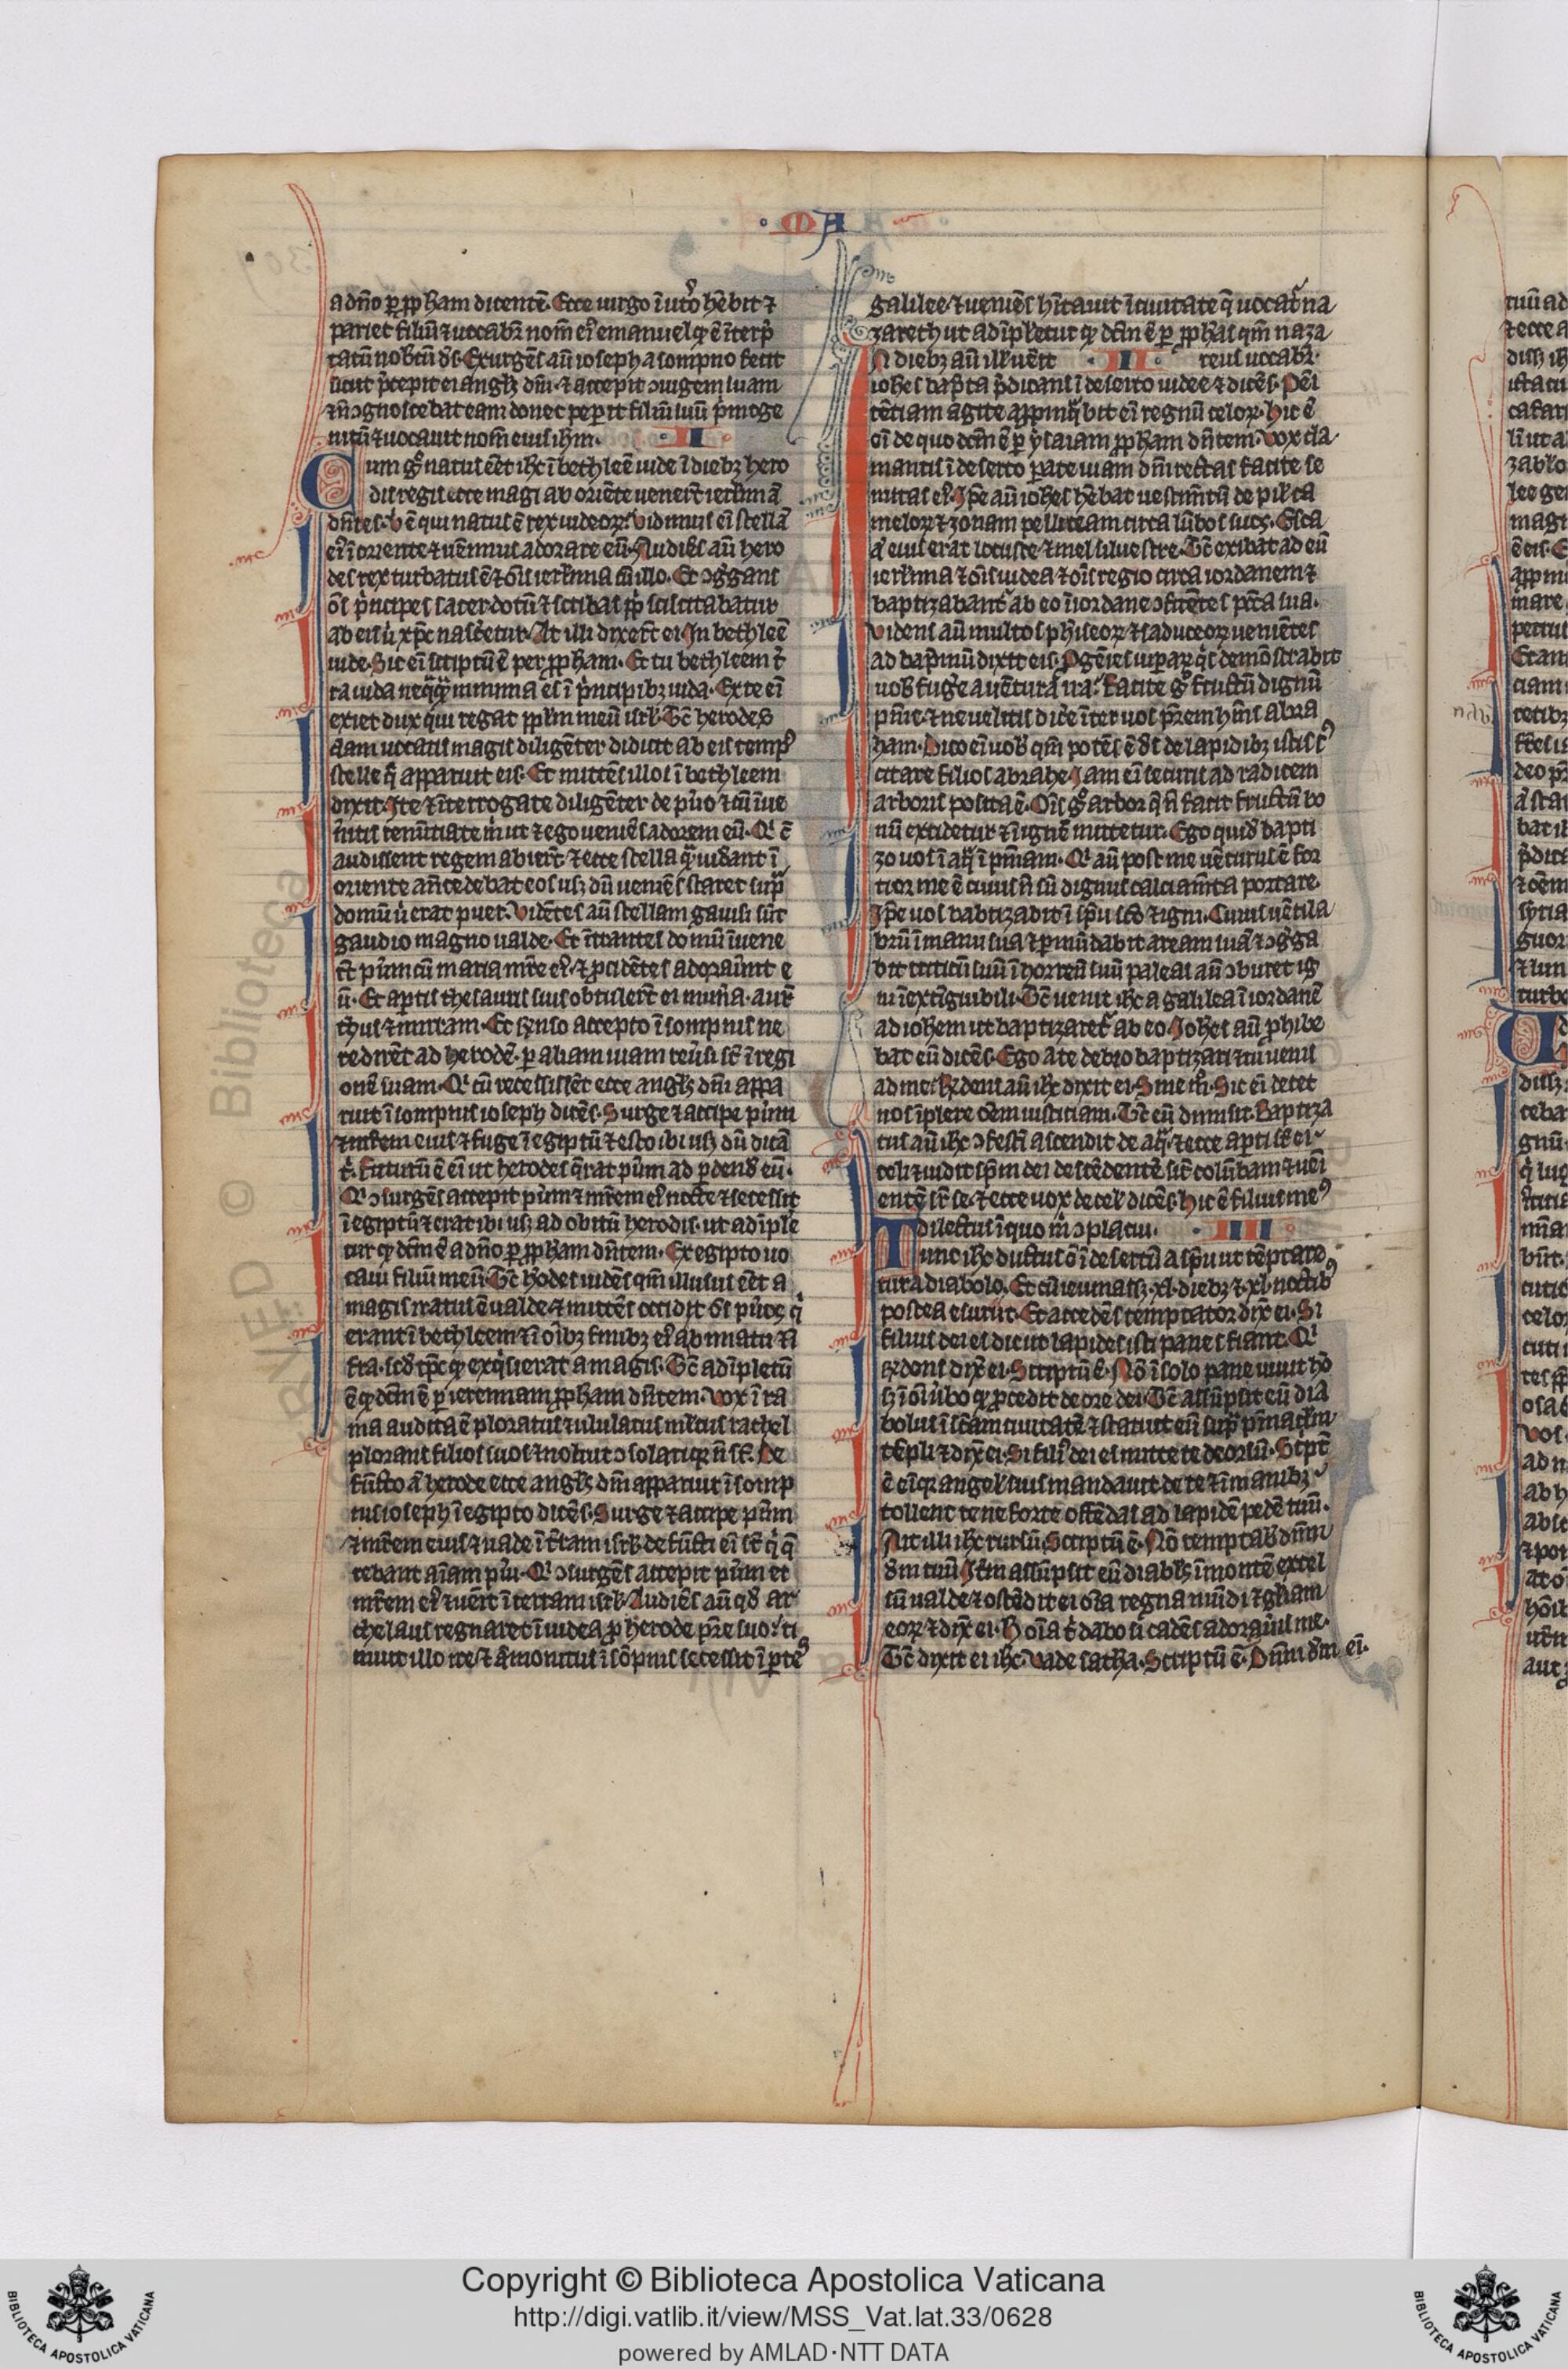 · MA
a dño ꝑ ꝓpham dicentē. Ecce uirgo ī utō hēbit ⁊
pariet filiū ⁊ uocabr̄ nom̄ eiꝰ emanuel qͥ ē īterp̄
tatū nobcū ds̄. Exurgēs aū ioseph a sompno fecit
sicut p̄cepit ei angłs dn̄i. ⁊ accepit ↄiugem suam
⁊ ñ ↄgnoscebat eam donec peperit filiū suū p̄moge
nitū ⁊ uocauit nom̄ eius ihm. · II ·
Cum gͦ natus eēt ihc ī bethleē iude ī diebꝫ hero
dis regis ecce magi ab oriēte uenert̄ ierłmā
dn̄tes. Vͥ ē qui natus ē rex iudeoꝝ. Vidimus eī stellā
eiꝰ ī oriente ⁊ uēimus adorare eū. Audiēs aū hero
des rex turbatus ē ⁊ ōis ierłma cū illo. Et ↄg̃gans
ōs pͥncipes sacerdotū ⁊ scribas ppłi sciscitabatur
ab eis uͥ xp̄c nasc̄etur. At illi dixert̄ ei. In bethleē
iude. Sic eī scriptū ē per ꝓpham. Et tu bethleem t̄
ra iuda neqͣqͣm minima es ī pͥncipibꝫ iuda. Ex te eī
exiet dux qui regat ppłm meū isrł. Tc̄ herodes
clam uocatis magis diligēter didicit ab eis tempꝰ
stelle q̄ apparuit eis. Et mittēs illos ī bethleem
dixit. Ite ⁊ īterrogate diligēter de pͥuo ⁊ cū īue
ñitis renūtiate m̄ ut ⁊ ego ueniēs adorem eū. Qͥ c̄
audissent regem abiert̄. ⁊ ecce stella qͣm uid̄ant ī
oriente añtecedebat eos usꝫ dū ueniēs staret supͣ
domū uͥ erat puer. Vidētes aū stellam gauisi sūt
gaudio magno ualde. Et ītrantes domū īuene
rt̄ pūm cū maria mr̄e eiꝰ. ⁊ ꝓcidētes adorauͥnt e
ū. Et aꝑtis thesauris suis obtulert̄ ei mun̄a. aur̄
thus ⁊ mirram. Et rn̄so accepto ī sompnis ne
redirēt ad herodē. ꝑ aliam uiam reūsi st̄ ī regi
onē suam. Qͥ cū recessissēt ecce angłs dn̄i appa
ruit ī sompnis ioseph dicēs. Surge ⁊ accipe pūm
⁊ mr̄em eius ⁊ fuge ī egiptū ⁊ esto ibi usꝫ dū dicā
tͥ. Futurū ē eī ut herodes q̄rat pūm ad ꝑdendū eū.
Qͥ ↄsurgēs accepit pūm ⁊ mr̄em eiꝰ nocte ⁊ secessit
ī egiptū ⁊ erat ibi usꝫ ad obitū herodis. ut adīple
tur qͥ dc̄m ē a dño ꝑ ꝓpham dn̄tem. Ex egipto uo
caui filiū meū. Tc̄ h̄odes uidēs qm̄ illusus eēt a
magis iratus ē ualde. ⁊ mittēs occidit ōs pūos qͥ
erant ī bethleem ⁊ ī oībꝫ finibꝫ eiꝰ a bimatu ⁊ ī
fra. scđ tp̄c qͥ exqͥsierat a magis. Tc̄ adīpletū
ē qͥ dc̄m ē ꝑ ieremiam ꝓpham dn̄tem. Vox ī ra
ma audita ē ploratus ⁊ ululatus młtus rachel
plorans filios suos ⁊ noluit ↄsolari qꝛ ñ st̄. De
fūcto aū herode ecce angłs dn̄i apparuit ī somp
nis ioseph ī egipto dicēs. Surge ⁊ accipe pūm
⁊ mr̄em eius ⁊ uade ī tr̄am isrł. defūcti eī st̄ qͥ q̄
rebant aīam pūi. Qͥ ↄsurgēs accepit pūm et
mr̄em eiꝰ ⁊ uēit ī terram isrł. Audiēs aū qđ ar
chelaus regnaret ī iudea ꝓ herode pr̄e suo. ti
muit illo ire. ⁊ am̄onitus ī sōpnis secessit ī ꝑtes
galilee. ⁊ ueniēs hītauit ī ciuitate q̄ uocat̄ na
zareth ut adīpletur qͥ dc̄m ē ꝑ ꝓphas qm̄ naza
IN diebꝫ aū illͥ uēit · III · reus uocabr̄.
iohes bap̄ta p̄dicans ī deserto iudee ⁊ dicēs. Pēi
tētiam agite appīnqͣbit eī regnū celoꝝ. Hic ē
eī de quo dc̄m ē ꝑ ysaiam ꝓpham dn̄tem. Vox cla
mantis ī deserto parate uiam dn̄i rectas facite se
mitas eiꝰ. Ip̄e aū iohes hēbat uestim̄tū de pilͥ ca
meloꝝ ⁊ zonam pelliceam circa lūbos suos. Esca
aū eius erat locuste ⁊ mel siluestre. Tc̄ exibat ad eū
ierłma ⁊ ōis iudea ⁊ ōis regio circa iordanem ⁊
baptizabant̄ ab eo ī iordane ↄfitētes pc̄ca sua.
Videns aū multos phīseoꝝ ⁊ saduceoꝝ ueniētes
ad bap̄mū dixit eis. Ꝓgēies uiparꝝ qͥs demōstrabit
uob̄ fug̃e a uētura ira. Facite gͦ fructū dignū
pn̄ie. ⁊ ne uelitis dic̄e īter uos pr̄em hm̄s abra
ham. Dico eī uob̄ qm̄ potēs ē ds̄ de lapidibꝫ istis sus
citare filios abrahe. Iam eī securis ad radicem
arboris posita ē. Oīs gͦ arbor q̄ ñ facit fructū bo
nū excidetur ⁊ ī ignē mittetur. Ego quidē bapti
zo uos ī aqͣ ī pn̄iam. Qͥ aū post me uēturus ē for
tior me ē cuius ñ sū dignus calciam̄ta portare.
Ip̄e uos babtizabit ī spū sc̄o ⁊ igni. Cuius uētila
brū ī manu sua ⁊ ꝑmūdabit aream suā ⁊ ↄg̃ga
bit triticū suū ī horreū suū paleas aū ↄburet ig
ni īextīguibili. Tc̄ uenit ihc a galilea ī iordanē
ad iohem ut baptizaret̄ ab eo. Iohes aū ꝓhibe
bat eū dicēs. Ego a te debeo baptizari ⁊ tu uenis
ad me. Rn̄dens aū ihc dixit ei. Sine mͦ. Sic eī decet
nos īplere oēm iusticiam. Tc̄ eū dimisit. Baptiza
tus aū ihc ↄfestī ascendit de aqͣ. ⁊ ecce aꝑti st̄ ei
celi ⁊ uidit spm̄ dei descēdentē sic̄ colūbam ⁊ uēi
entē sr̄ se. ⁊ ecce uox de celͥ dicēs. Hic ē filius meꝰ
dilectus ī quo m̄ ↄplacui. · IIII ·
Tunc ihc ductus ē ī desertū a spū ut tēptare
tur a diabolo. Et cū ieiunassꝫ .xl. diebꝫ ⁊ .xl. noctibꝰ
postea esuriit. Et accedēs temptator dix̄ ei. Si
filius dei es dic ut lapides isti panes fiant. Qͥ
rn̄dens dix̄ ei. Scriptū ē. Nō ī solo pane uiuit hō
sꝫ ī ōi ūbo qͥ ꝓcedit de ore dei. Tc̄ assūpsit eū dia
bolus ī sc̄am ciuitatē ⁊ statuit eū supͣ pīnaclm̄
tēpli ⁊ dix̄ ei. Si filiͥ dei es mitte te deorsū. Scͥpt̄
ē eī qꝛ angelͥ suis mandauit de te ⁊ ī manibꝫ
tollent te ne forte offēdas ad lapidē pedē tuū.
Ait illi ihc rursū. Scriptū ē. Nō temptabͥ dn̄m
dm̄ tuū. It̄m assūpsit eū diabłs ī montē excel
sū ualde ⁊ ostēdit ei oīa regna mūdi ⁊ głiam
eoꝝ ⁊ dix̄ ei. H oīa tͥ dabo si cadēs adorauͥis me.
Tc̄ dixit ei ihc. Vade satha. Scriptū ē. Dn̄m dm̄ ei.
Copyright © Biblioteca Apostolica Vaticana
http://digi.vatlib.it/view/MSS_Vat.lat.33/0628
powered by AMLAD·NTT DATA
BIBLIOTECA APOSTOLICA VATICANA
BIBLIOTECA APOSTOLICA VATICANA